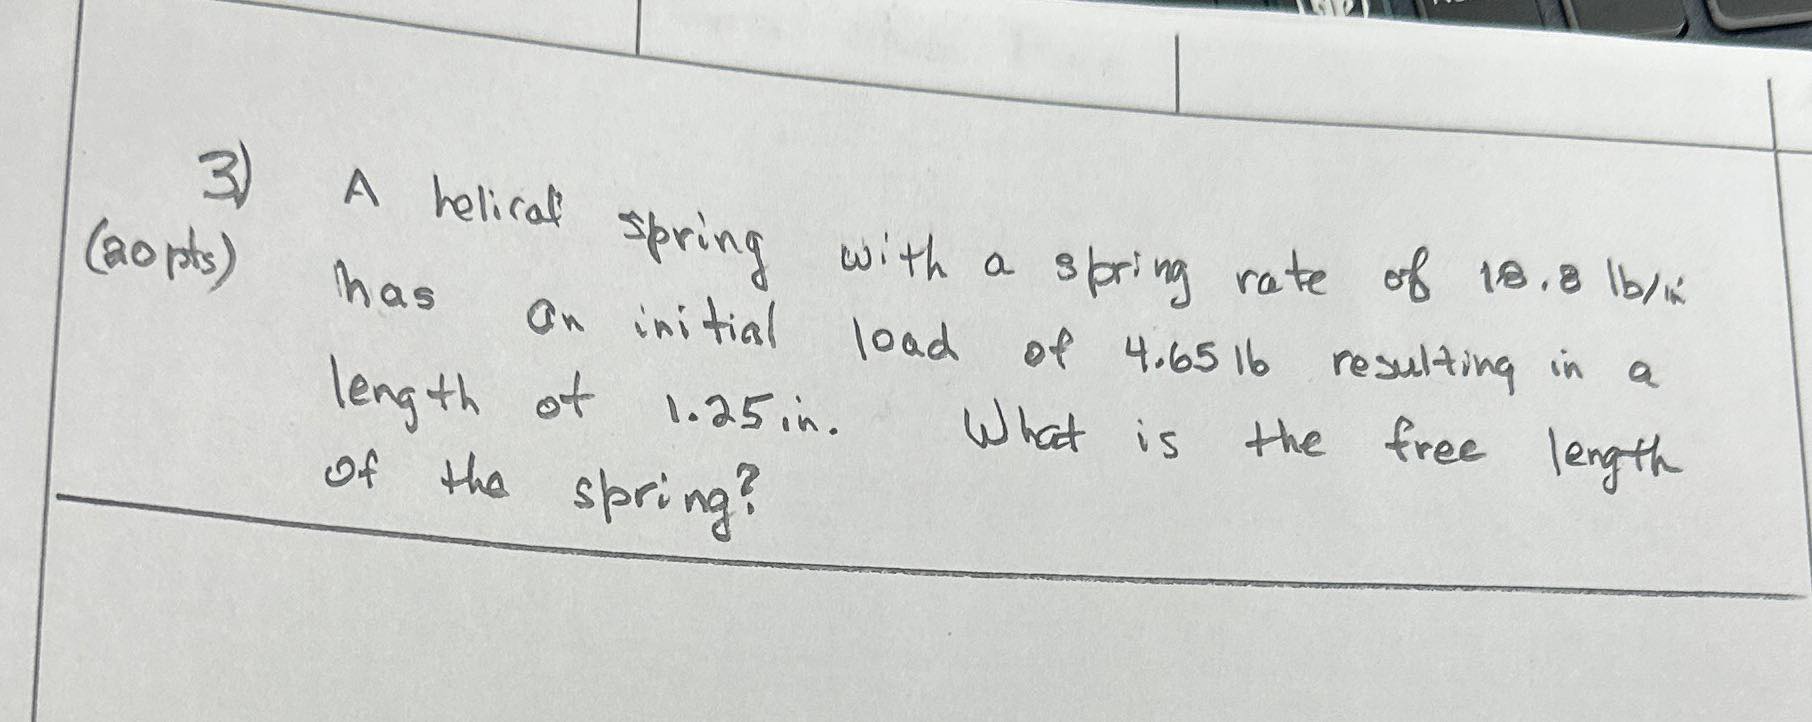 3) A helical spring with a spring rate of 18.8 lb/in
(20pts) has an initial load of 4.65 lb resulting in a
length of 1.25 in. What is the free length
of the spring?